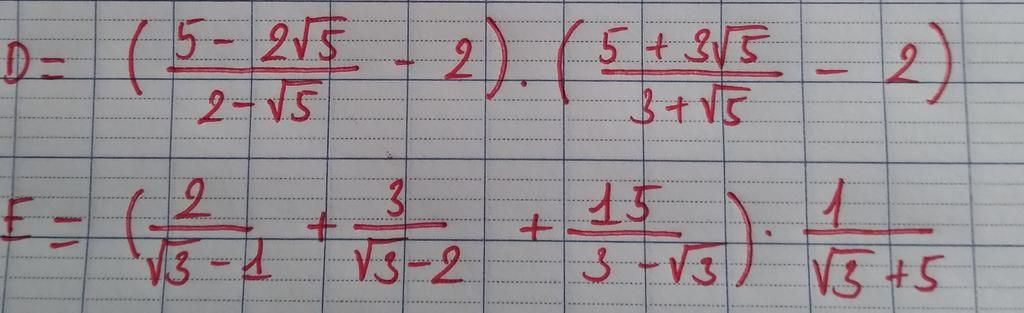 D = ( (5 - 2√5)/(2 - √5) - 2 ) . ( (5 + 3√5)/(3 + √5) - 2 )
E = ( 2/(√3 - 1) + 3/(√3 - 2) + 15/(3 - √3) ) . 1/(√3 + 5)